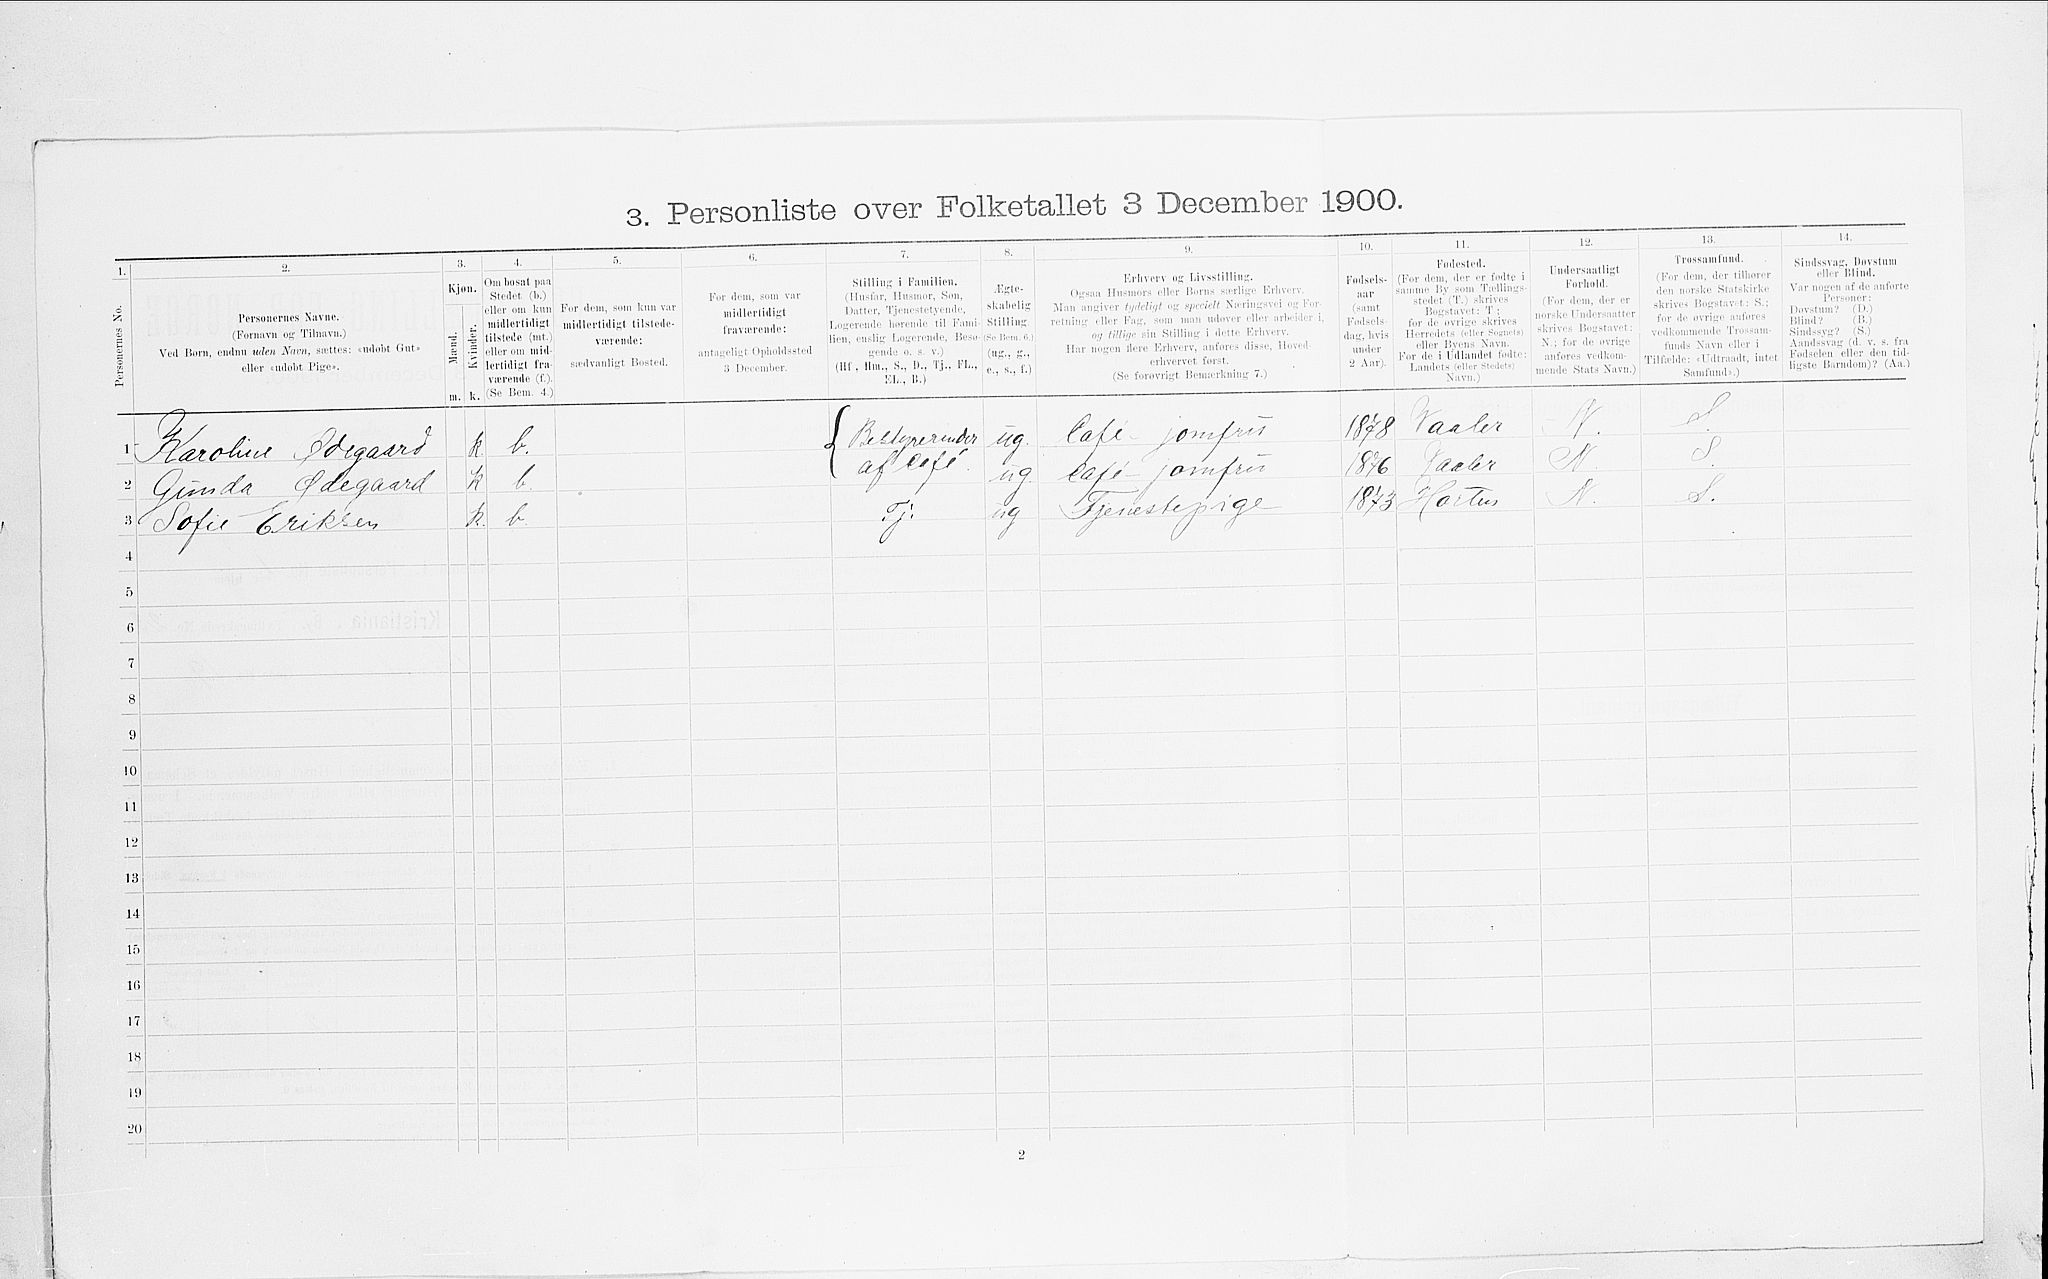 3. Personliste over Folketallet 3 December 1900.
1.
Personernes No.
2.
Personernes Navne.
(Fornavn og Tilnavn.)
Ved Børn, endnu uden Navn, sættes: «udøbt Gut»
eller «udøbt Pige».
3.
Kjøn.
Mænd.
Kvinder.
m. k.
4.
Om bosat paa
Stedet (b.)
eller om kun
midlertidigt
tilstede (mt.)
eller om mid-
lertidigt fra-
værende (f.).
(Se Bem. 4.)
5.
For dem, som kun var
midlertidigt tilstede-
værende:
sædvanligt Bosted.
6.
For dem, som var
midlertidigt
fraværende:
antageligt Opholdssted
3 December.
7.
Stilling i Familien.
(Husfar, Husmor, Søn,
Datter, Tjenestetyende,
Logerende hørende til Fami-
lien, enslig Logerende, Besø-
gende o. s. v.)
(Hf., Hm., S., D., Tj., FL.,
EL., B.)
8.
Ægte-
skabelig
Stilling.
(Se Bem. 6.)
(ug., g.,
e., s., f.)
9.
Erhverv og Livsstilling.
Ogsaa Husmors eller Børns særlige Erhverv.
Man angiver tydeligt og specielt Næringsvei og For-
retning eller Fag, som man udøver eller arbeider i,
og tillige sin Stilling i dette Erhverv.
Har nogen flere Erhverv, anføres disse, Hoved-
erhvervet først.
(Se forøvrigt Bemærkning 7.)
10.
Fødsels-
aar
(samt
Fødsels-
dag, hvis
under
2 Aar).
11.
Fødested.
(For dem, der er fødte i
samme By som Tællings-
stedet (T.) skrives
Bogstavet: T;
for de øvrige skrives
Herredets (eller Sognets)
eller Byens Navn.
For de i Udlandet fødte:
Landets (eller Stedets)
Navn.)
12.
Undersaatligt
Forhold.
(For dem, der er
norske Undersaatter
skrives Bogstavet:
N.; for de øvrige
anføres vedkom-
mende Stats Navn.)
13.
Trossamfund.
(For dem, der tilhører
den norske Statskirke
skrives Bogstavet: S.;
for de øvrige anføres
vedkommende Trossam-
funds Navn eller i
Tilfælde: «Udtraadt, intet
Samfund».)
14.
Sindssvag, Døvstum
eller Blind.
Var nogen af de anførte
Personer:
Døvstum? (D.)
Blind? (B.)
Sindssyg? (S.)
Aandssvag (d. v. s. fra
Fødselen eller den tid-
ligste Barndom)? (Aa.)
1 Karoline Ødegaard k b. { Bestyrerinder ug. Café-jomfru 1878 Vaaler N. S.
af Café.
2 Gunda Ødegaard k b. ug. Café-jomfru 1876 Vaaler N. S.
3 Sofie Eriksen k. b. Tj. ug Tjenestepige 1873 N. S.
4
5
6
7
8
9
10
11
12
13
14
15
16
17
18
19
20
2